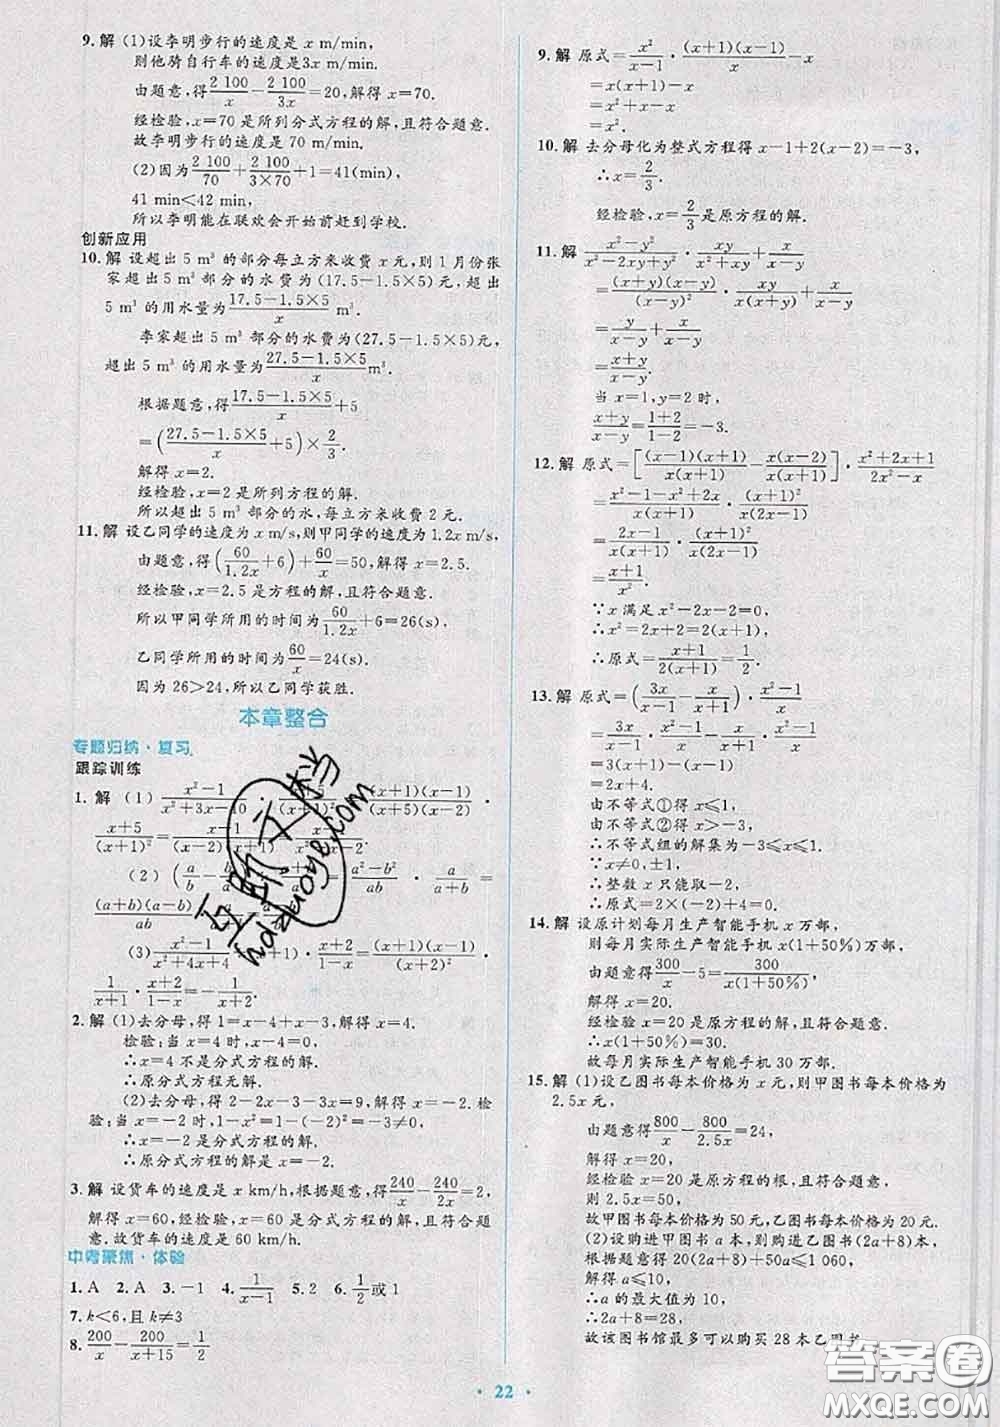 9. 解 (1)设李明步行的速度是 x m/min,
则他骑自行车的速度是3x m/min.
由题意,得2 100/x－2 100/3x＝20,解得 x＝70.
经检验,x＝70 是所列分式方程的解,且符合题意.
故李明步行的速度是 70 m/min.
(2)因为2 100/70＋2 100/3×70＋1＝41(min),
41 min＜42 min,
所以李明能在联欢会开始前赶到学校.
创新应用
10. 解 设超出 5 m³ 的部分每立方米收费 x 元,则 1 月份张
家超出 5 m³ 部分的水费为(17.5－1.5×5)元,超出
5 m³ 的用水量为17.5－1.5×5/x m³.
李家超出 5 m³ 部分的水费为(27.5－1.5×5)元,
超出 5 m³ 的用水量为27.5－1.5×5/x m³.
根据题意,得17.5－1.5×5/x＋5
＝(27.5－1.5×5/x＋5)×2/3.
解得 x＝2.
经检验,x＝2 是所列方程的解.
所以超出 5 m³ 部分的水,每立方米收费 2 元.
11. 解 设乙同学的速度为 x m/s,则甲同学的速度为 1.2x m/s,
由题意,得(60/1.2x＋6)＋60/x＝50,解得 x＝2.5.
经检验,x＝2.5 是方程的解,且符合题意.
所以甲同学所用的时间为60/1.2x＋6＝26(s),
乙同学所用的时间为60/x＝24(s).
因为 26＞24,所以乙同学获胜.
本章整合
专题归纳·复习
跟踪训练
1. 解 (1) x²－1/x²＋3x－10 (x＋1)² (x＋1)(x－1)/(x－2)(x＋5) ·
x＋5/(x＋1)²＝x－1/(x－2)
(2) (a/b－b/a) a²－b²/ab · a/a＋b＝
(a＋b)(a－b)/ab
(3) x²－1/x²＋4x · x＋2/1－x＝(x＋1)(x－1)/(x＋2)² ·
1/x＋1 · x＋2/1－x＝－1/x＋2.
2. 解 (1)去分母,得 1＝x－4＋x－3,解得 x＝4.
检验:当 x＝4 时,x－4＝0,
∴x＝4 不是分式方程的解.
∴原分式方程无解.
(2)去分母,得 2－2x－3－3x＝9,解得 x＝－2. 检
验:当 x＝－2 时,1－x²＝1－(－2)²＝－3≠0,
∴x＝－2 是分式方程的解.
∴原分式方程的解是 x＝－2.
3. 解 设货车的速度是 x km/h,根据题意,得240/x－240/2x＝2,
解得 x＝60,经检验,x＝60 是分式方程的解且符合题
意.故货车的速度是 60 km/h.
中考聚焦·体验
1. A 2. A 3. －1 4. 1/x－1 5. 2 6. 1/2或 1
7. k＜6,且 k≠3
8. 200/x－200/x＋15＝1/2
9. 解 原式＝x²/x－1 · (x＋1)(x－1)/x－x
＝x(x＋1)－x
＝x²＋x－x
＝x².
10. 解 去分母化为整式方程得 x－1＋2(x－2)＝－3,
∴x＝2/3.
经检验,x＝2/3是原方程的解.
11. 解 x²－y²/x²－2xy＋y² · xy/x²＋xy＋x/x－y
＝(x＋y)(x－y)/(x－y)² · xy/x(x＋y)＋x/x－y
＝y/x－y＋x/x－y
＝x＋y/x－y.
当 x＝1,y＝2 时,
x＋y/x－y＝1＋2/1－2＝－3.
12. 解 原式＝[(x－1)(x＋1)/x(x＋1)－x(x－2)/x(x＋1)] · x²＋2x＋1/2x²－x
＝x²－1－x²＋2x/x(x＋1) · (x＋1)²/x(2x－1)
＝2x－1/x(x＋1) · (x＋1)²/x(2x－1)
＝x＋1/x².
∵x 满足 x²－2x－2＝0,
∴x²＝2x＋2＝2(x＋1).
∴原式＝x＋1/2(x＋1)＝1/2.
13. 解 原式＝(3x/x－1－x/x＋1) · x²－1/x
＝3x/x－1 · x²－1/x－x/x＋1 · x²－1/x
＝3(x＋1)－(x－1)
＝2x＋4.
由不等式①得 x≤1,
由不等式②得 x＞－3,
∴不等式组的解集为－3＜x≤1.
∵x≠0,±1,
∴整数 x 只能取－2.
∴原式＝2×(－2)＋4＝0.
14. 解 设原计划每月生产智能手机 x 万部,
则每月实际生产智能手机 x(1＋50%)万部,
由题意得300/x－5＝300/x(1＋50%),
解得 x＝20.
经检验 x＝20 是原方程的解,且符合题意.
∴x(1＋50%)＝30.
故每月实际生产智能手机 30 万部.
15. 解 (1)设乙图书每本价格为 x 元,则甲图书每本价格为
2.5x 元,
由题意得800/x－800/2.5x＝24,
解得 x＝20.
经检验 x＝20 是原方程的根,且符合题意.
则 2.5x＝50.
故甲图书每本价格为 50 元,乙图书每本价格为 20 元.
(2)设购进甲图书 a 本,则购进乙图书(2a＋8)本,
根据题意得 50a＋20(2a＋8)≤1 060,
解得 a≤10.
∴a 的最大值为 10,
∴2a＋8＝28.
故该图书馆最多可以购买 28 本乙图书.
22
答案圈
MXQE.COM